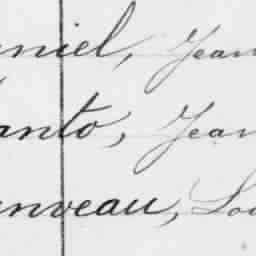 niel, Jean
anto, Jean
nveau, Lou